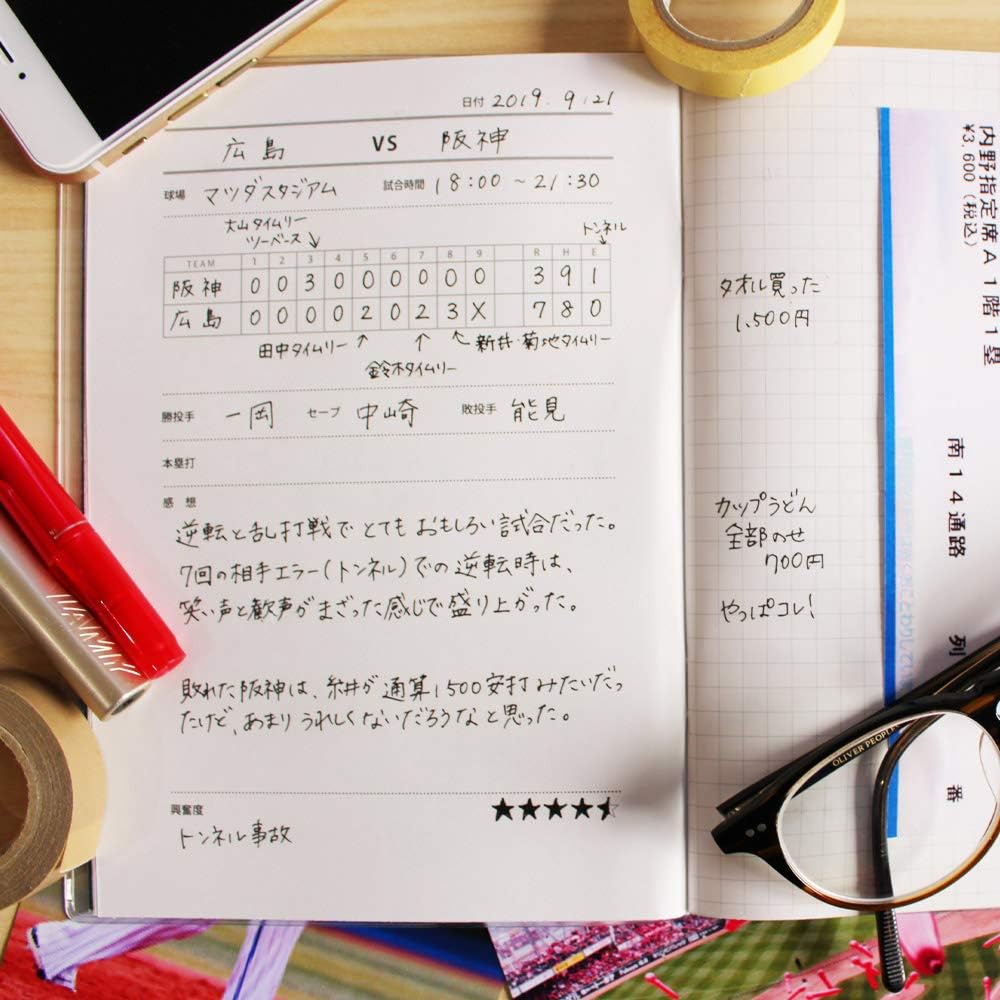 日付 2019. 9.21
広島 VS 阪神
球場 マツダスタジアム 試合時間 18:00 ~ 21:30
大山タイムリー
ツーベース
トンネル
TEAM 1 2 3 4 5 6 7 8 9 R H E
阪神 0 0 3 0 0 0 0 0 0 3 9 1
広島 0 0 0 0 2 0 2 3 X 7 8 0
田中タイムリー
鈴木タイムリー
新井・菊地タイムリー
勝投手 一岡 セーブ 中山奇 敗投手 能見
本塁打
感想
逆転と乱打戦でとてもおもしろい試合だった。
7回の相手エラー(トンネル)での逆転時は、
笑い声と歓声がまざった感じで盛り上がった。
敗れた阪神は、糸井が通算1500安打みたいだっ
たけど、あまりうれしくないだろうなと思った。
興奮度 ★★★★
トンネル事故
タオル買った
1,500円
カップうどん
全部のせ
700円
やっぱコレ!
内野指定席A1階1塁
¥3,600(税込)
南14通路 列 番
OLIVER PEOPLES